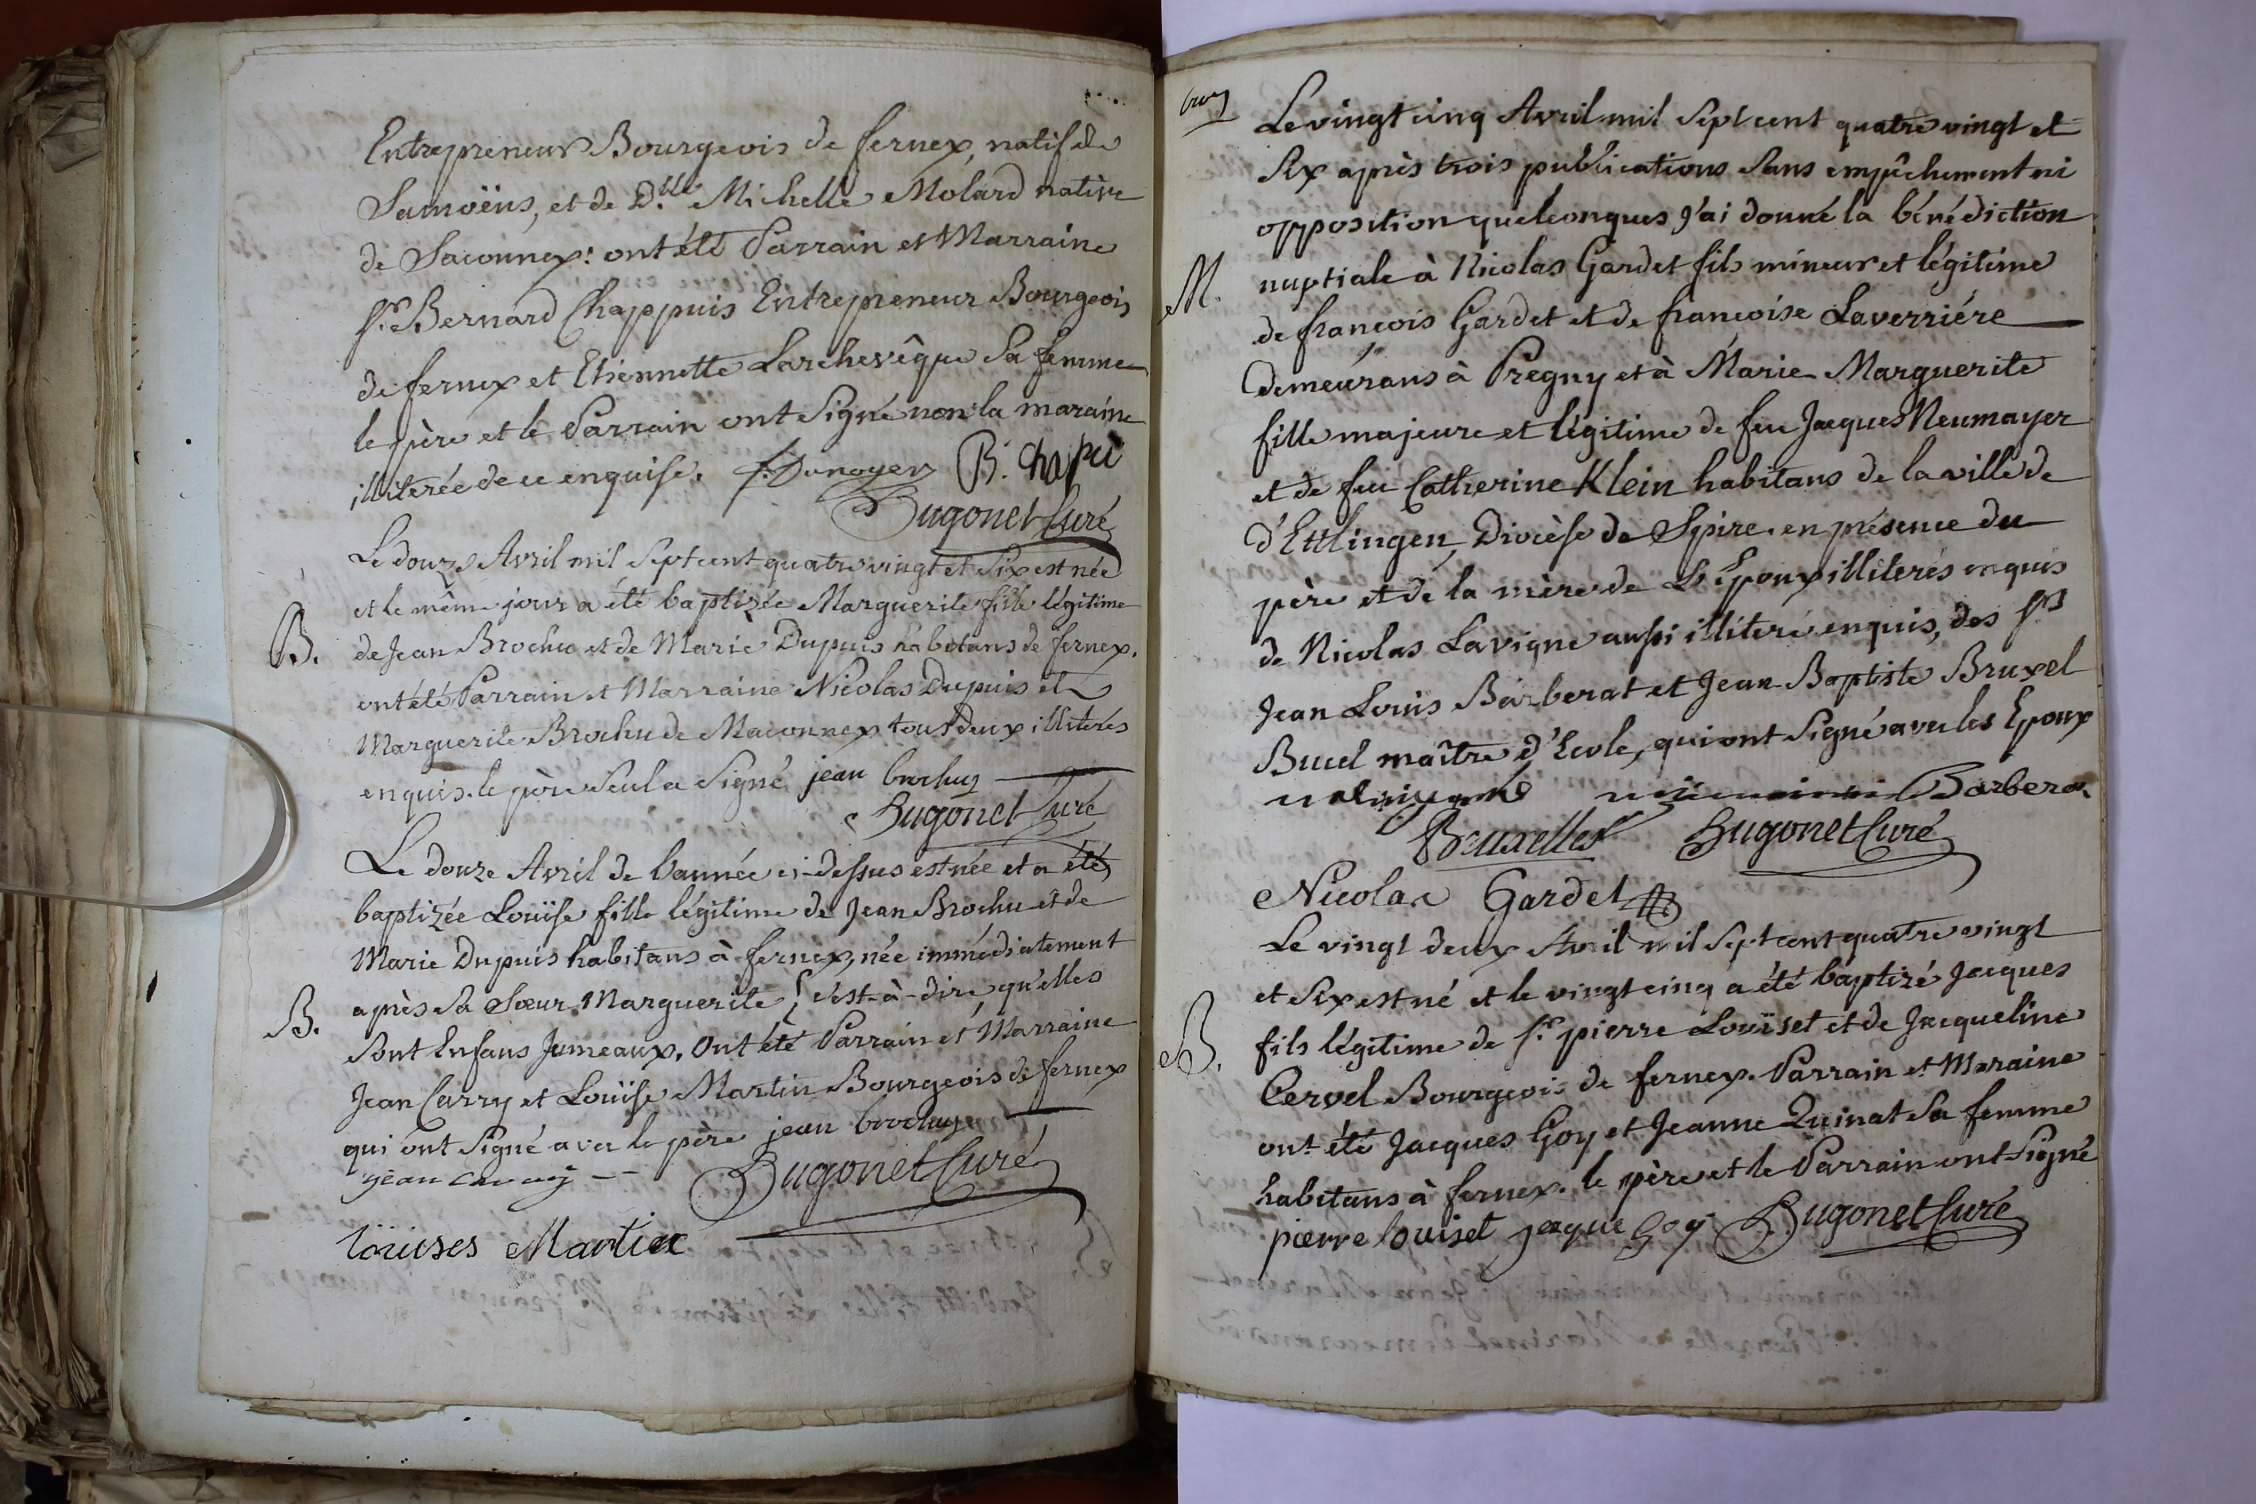 Entrepreneur Bourgeois de fernex, natif de
Samoëns, et de D.lle Michelle Molard native
de Saconnex: ont été Parrain et Marraine
Sr. Bernard Chappuis Entrepreneur Bourgeois
de fernex et Etiennette Larchevêque Sa femme
le père et le Parrain ont Signé non la maraine
illiterée de ce enquise. f. Dunoyer B. Chapu
Bugonet Curé
Le douze Avril mil Sept cent quatre vingt et Six est née
et le même jour a été baptizée Marguerite fille légitime
B. de Jean Brochu et de Marie Dupuis habitans de fernex.
ont été Parrain et Marraine Nicolas Dupuis et
Marguerite Brochu de Maconnex tous deux illiterés
enquis. le père Seul a Signé jean brochuz
Bugonet Curé
Le douze Avril de l'année ci-dessus est née et a été
baptizée Louïse fille légitime de Jean Brochu et de
Marie Dupuis habitans à fernex, née immédiatement
après Sa Sœur Marguerite, c'est-à-dire qu'elles
B. Sont Enfans Jumeaux. Ont été Parrain et Marraine
Jean Carry et Louïse Martin Bourgeois de fernex
qui ont Signé avec le père jean brochuz
jean
Bugonet Curé
louises Martin
Le vingt cinq Avril mil Sept cent quatre vingt et
Six après trois publications Sans empêchement ni
opposition quelconques j'ai donné la bénédiction
M. nuptiale à Nicolas Gardet fils mineur et légitime
de françois Gardet et de françoise Laverriére
demeurans à Pregny et à Marie Marguerite
fille majeure et légitime de feu Jacques Neumayer
et de feu Catherine Klein habitans de la ville de
d'Ettlingen, Diocèse de Spire. en présence du
père et de la mère de L'Epoux illiterés enquis
de Nicolas Lavigne aussi illiteré enquis, des Srs
Jean Louis Barberat et Jean-Baptiste Bruxel
Bucel maître d'Ecole, qui ont Signé avec les Epoux
Barberat
Bruxelles Bugonet Curé
Nicolas Gardet
Le vingt deux Avril mil Sept cent quatre vingt
et Six est né et le vingt cinq a été baptizé Jacques
B. fils légitime de Sr. pierre Louïset et de Jacqueline
Cervel Bourgeois de fernex. Parrain et Maraine
ont été Jacques Goy et Jeanne Quinat Sa femme
habitans à fernex. le père et le Parrain ont Signé
pierre louiset jaque goy Bugonet Curé